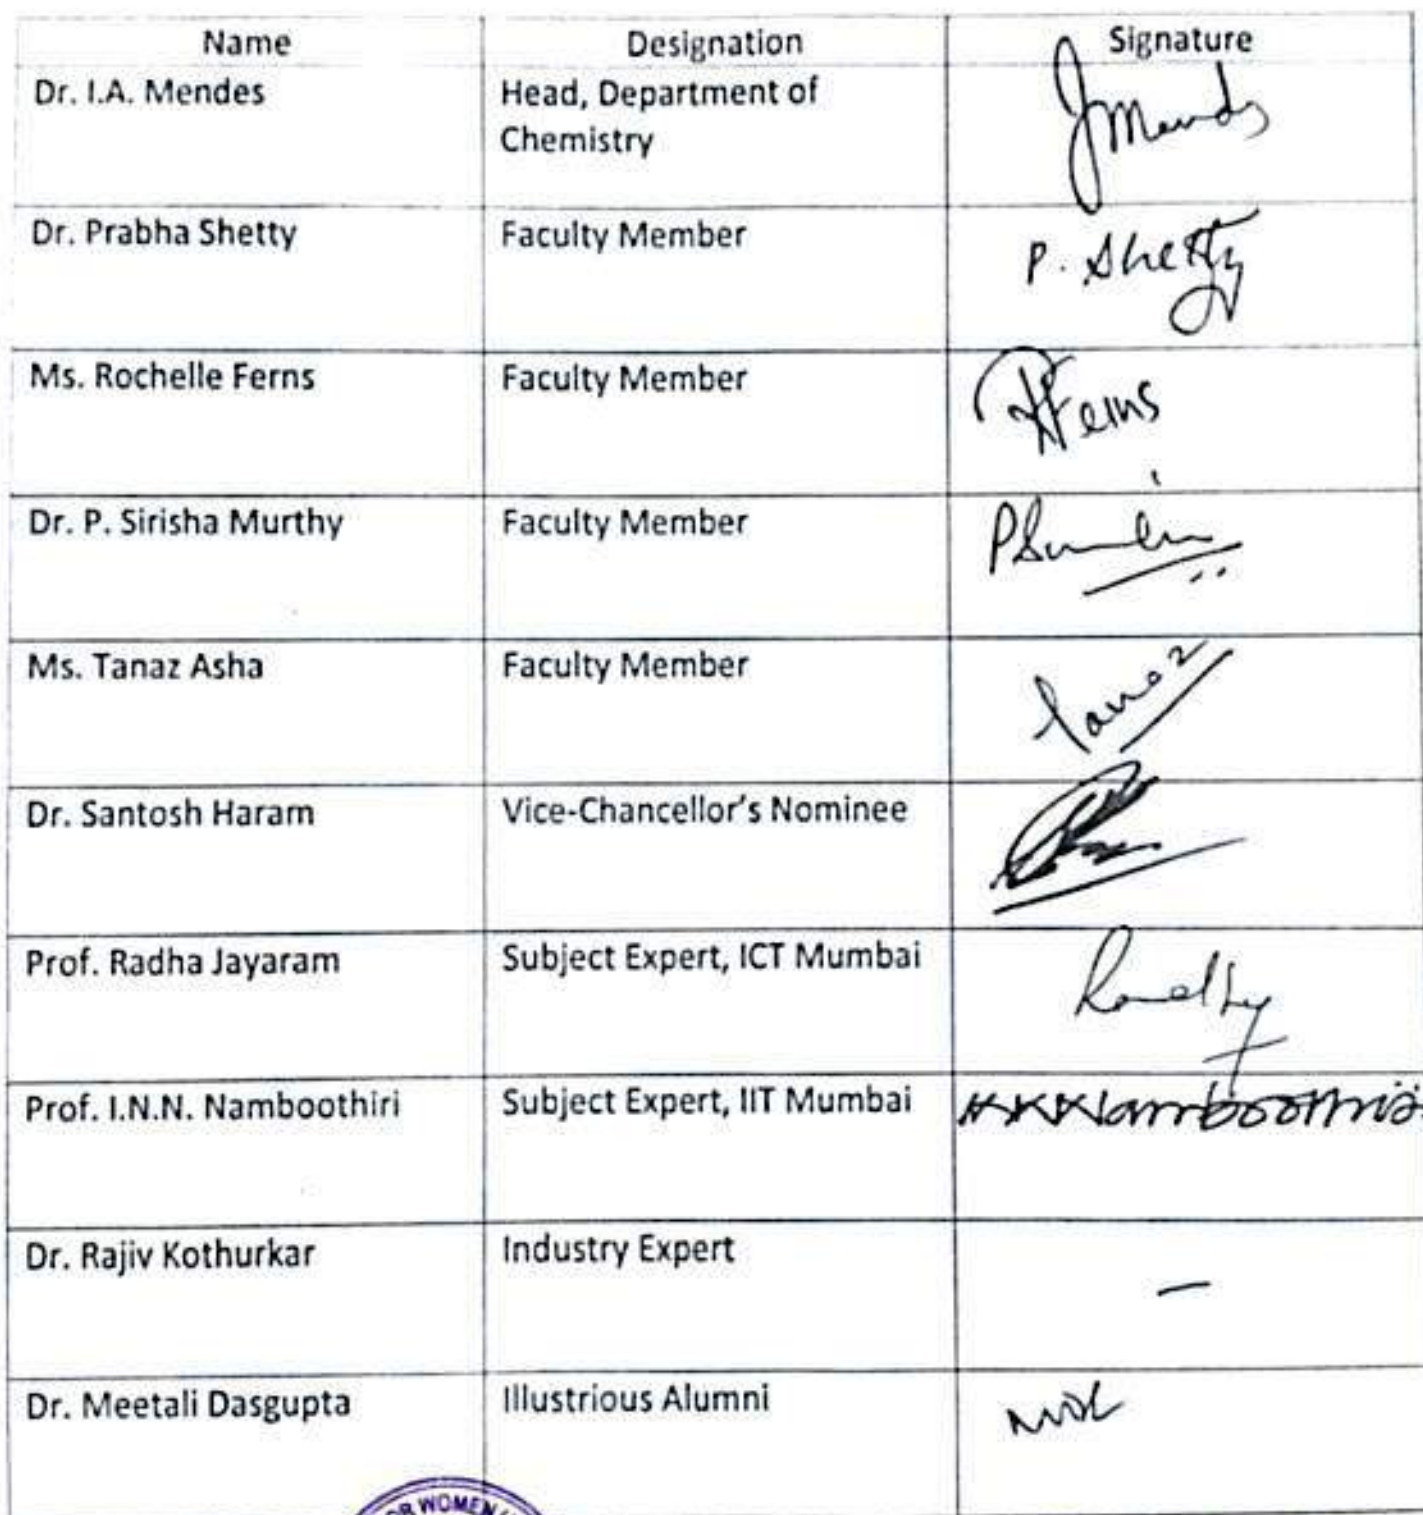 Name Designation Signature
Dr. I.A. Mendes Head, Department of
Chemistry
JMends
Dr. Prabha Shetty Faculty Member P. Shetty
Ms. Rochelle Ferns Faculty Member RFerns
Dr. P. Sirisha Murthy Faculty Member
Ms. Tanaz Asha Faculty Member Tanaz
Dr. Santosh Haram Vice-Chancellor's Nominee
Prof. Radha Jayaram Subject Expert, ICT Mumbai
Prof. I.N.N. Namboothiri Subject Expert, IIT Mumbai
Dr. Rajiv Kothurkar Industry Expert –
Dr. Meetali Dasgupta Illustrious Alumni
OR WOMEN